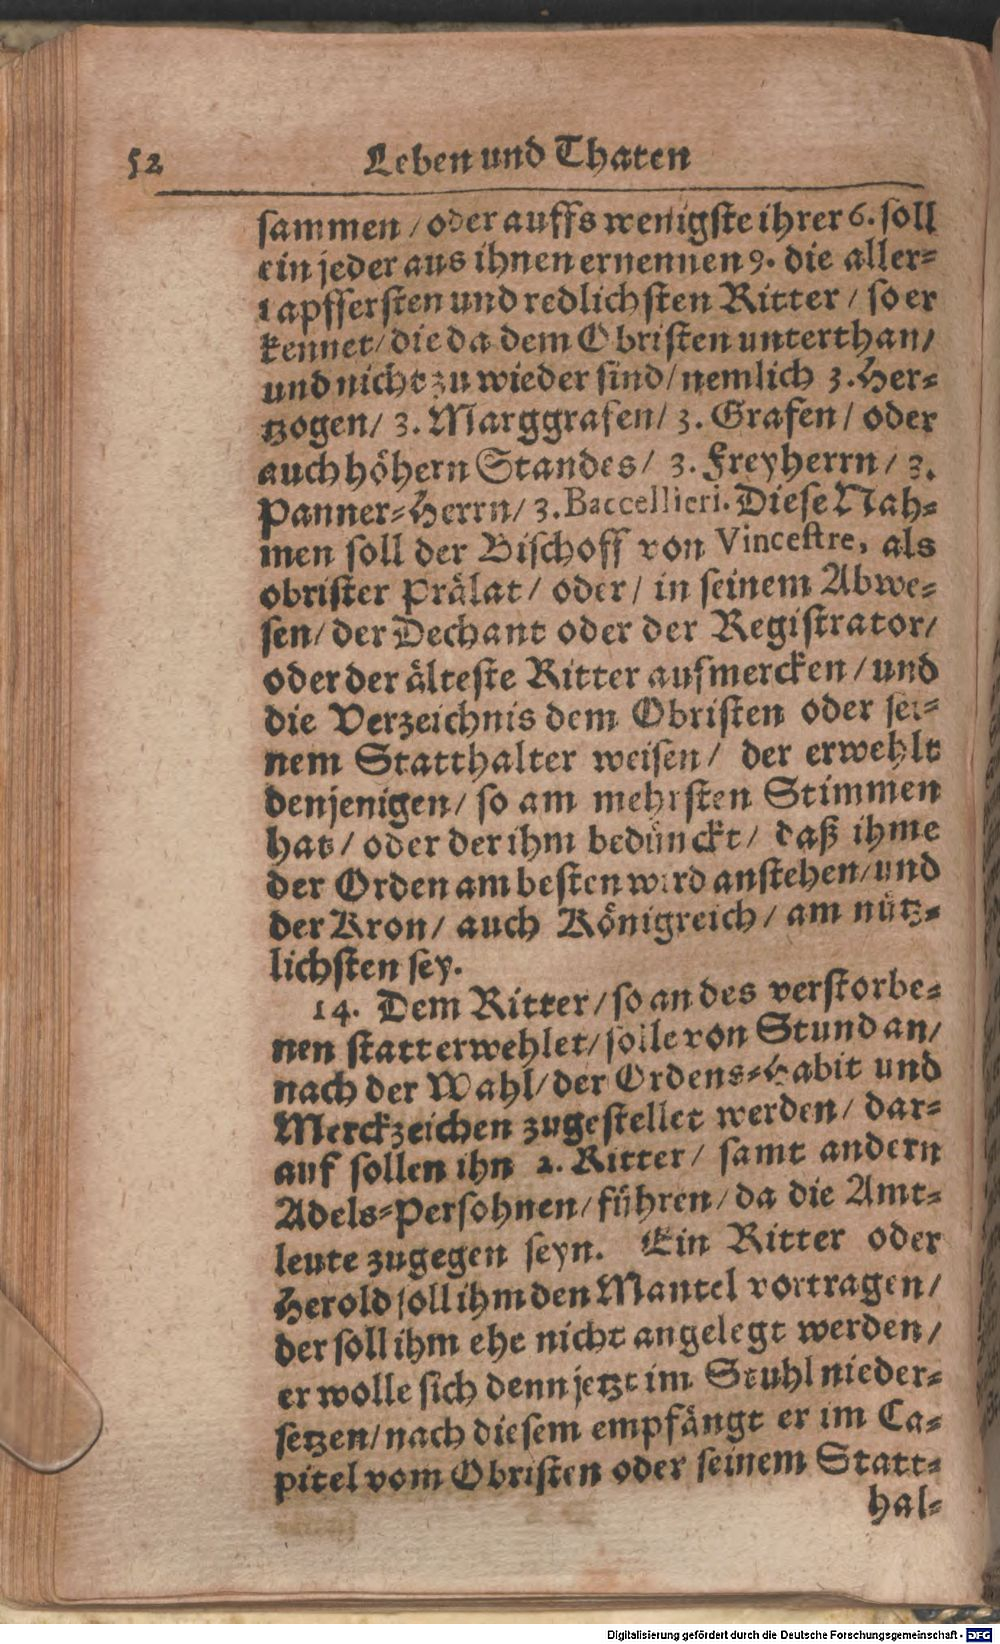 52 Leben und Thaten
sammen / oder auffs wenigste ihrer 6. soll
ein jeder aus ihnen ernennen 9. die aller-
tapffersten und redlichsten Ritter / so er
kennet / die da dem Obristen unterthan /
und nicht zu wieder sind / nemlich 3. Her-
tzogen / 3. Marggrafen / 3. Grafen / oder
auch höhern Standes / 3. Freyherrn / 3.
Panner-Herrn / 3. Baccellieri. Diese Nah-
men soll der Bischoff von Vincestre, als
obrister Prälat / oder / in seinem Abwe-
sen / der Dechant oder der Registrator /
oder der älteste Ritter aufmercken / und
die Verzeichnis dem Obristen oder sei-
nem Statthalter weisen / der erwehlt
denjenigen / so am mehrsten Stimmen
hat / oder der ihm bedünckt / daß ihme
der Orden am besten wird anstehen / und
der Kron / auch Königreich / am nütz-
lichsten sey.
14. Dem Ritter / so an des verstorbe-
nen statt erwehlet / solle von Stund an /
nach der Wahl / der Ordens-Habit und
Merckzeichen zugestellet werden / dar-
auf sollen ihn 2. Ritter / samt andern
Adels-Persohnen / führen / da die Amt-
leute zugegen seyn. Ein Ritter oder
Herold soll ihm den Mantel vortragen /
der soll ihm ehe nicht angelegt werden /
er wolle sich denn jetzt im Stuhl nieder-
setzen / nach diesem empfängt er im Ca-
pitel vom Obristen oder seinem Statt-
hal-
Digitalisierung gefördert durch die Deutsche Forschungsgemeinschaft - DFG